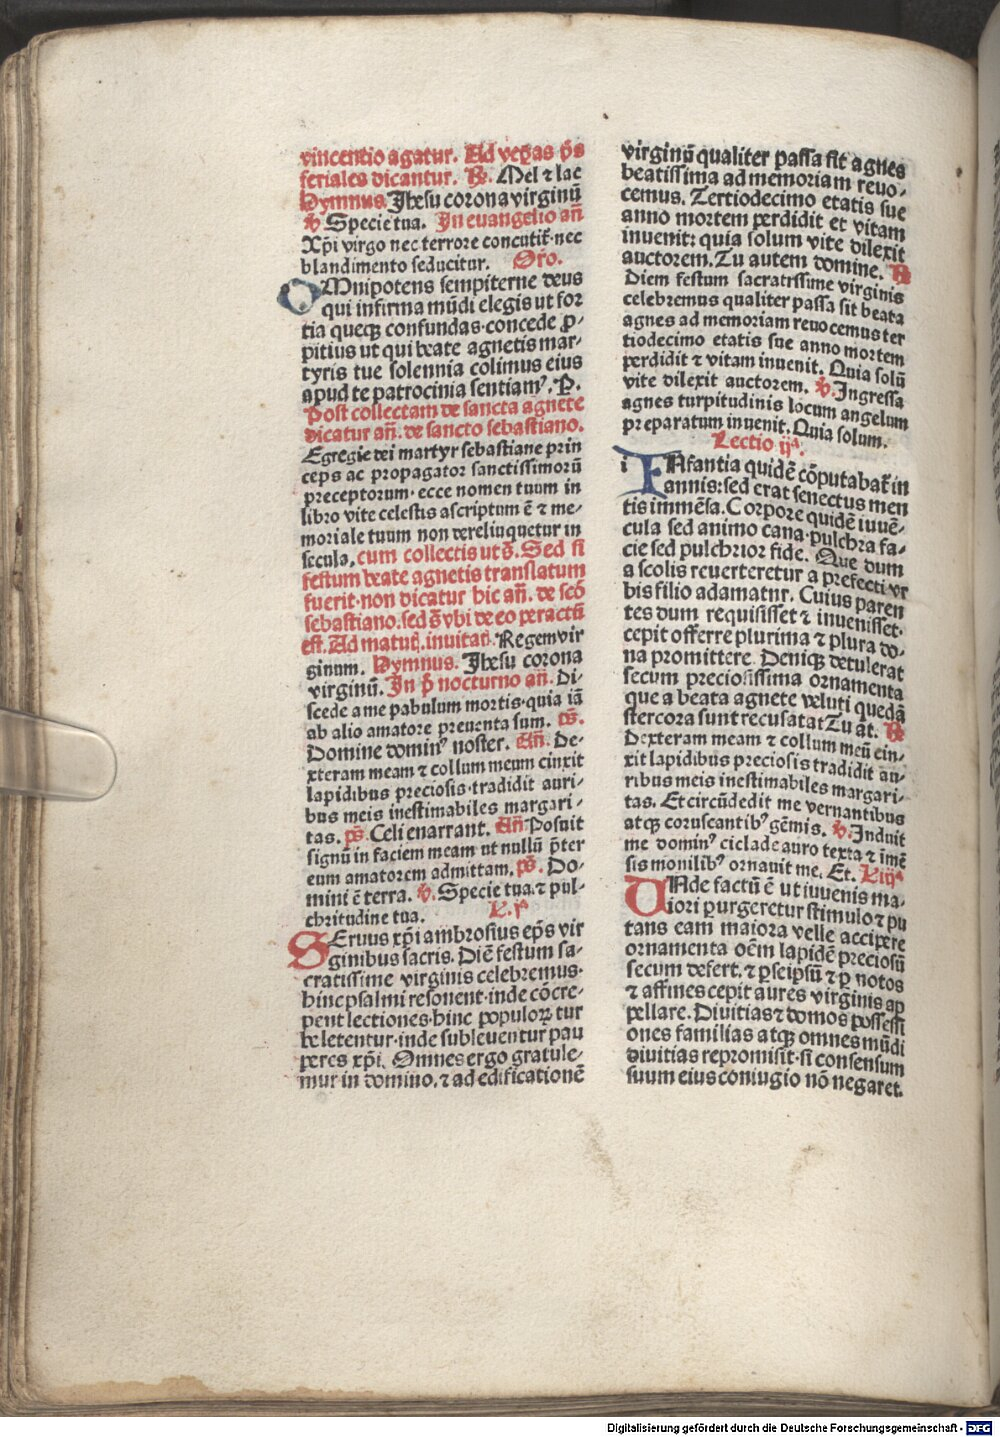 vincentio agatur. Ad veꝑas p̄s
feriales dicantur. ℟. Mel ⁊ lac
Hymnus. Jhesu corona virginū
℣ Specie tua. Jn euangelio añ
Xp̄i virgo nec terrore concutit̄ nec
blandimento seducitur. Or̄o.
OMnipotens sempiterne deus
qui infirma mūdi elegis ut for
tia queqꝫ confundas·concede ꝓ-
pitius ut qui beate agnetis mar-
tyris tue solennia colimus eius
apud te patrocinia sentiamꝰ. P.
Post collectam de sancta agnete
dicatur añ. de sancto sebastiano.
Egregie dei martyr sebastiane prin
ceps ac propagator sanctissimorū
preceptorum· ecce nomen tuum in
libro vite celestis ascriptum ē ⁊ me-
moriale tuum non derelinquetur in
secula. cum collectis ut s̄. Sed si
festum beate agnetis translatum
fuerit·non dicatur hic añ. de scō
sebastiano. sed s̄ vbi de eo peractū
est. Ad matuṯ. inuitaṯ. Regem vir
ginum. Hymnus. Jhesu corona
virginū. Jn p̄ nocturno añ. Di-
scede a me pabulum mortis·quia iā
ab alio amatore preuenta sum. ps̄.
Domine dominꝰ noster. Añ. De-
xteram meam ⁊ collum meum cinxit
lapidibus preciosis·tradidit auri-
bus meis inestimabiles margari-
tas. ps̄. Celi enarrant. Añ Posuit
signū in faciem meam ut nullū p̄ter
eum amatorem admittam. ps̄. Do-
mini ē terra. ℣. Specie tua.⁊ pul-
chritudine tua. L.jᵃ
SEruus xp̄i ambrosius ep̄s vir
ginibus sacris. Diē festum sa-
cratissime virginis celebremus·
hinc psalmi resonent·inde cōcre-
pent lectiones·hinc populoꝝ tur
be letentur·inde subleuentur pau
peres xp̄i. Omnes ergo gratule-
mur in domino. ⁊ ad edificationē
virginū qualiter passa sit agnes
beatissima ad memoriam reuo-
cemus. Tertiodecimo etatis sue
anno mortem perdidit et vitam
inuenit: quia solum vite dilexit
auctorem. Tu autem domine. ℟
Diem festum sacratrssime virginis
celebremus qualiter passa sit beata
agnes ad memoriam reuocemus ter
tiodecimo etatis sue anno mortem
perdidit ⁊ vitam inuenit. Quia solū
vite dilexit auctorem. ℣. Jngressa
agnes turpitudinis locum angelum
preparatum inuenit. Quia solum.
Lectio ijᵃ.
i INfantia quidē cōputabat̄ in
annis: sed erat senectus men
tis immēsa. Corpore quidē iuuē-
cula sed animo cana·pulchra fa-
cie sed pulchrior fide. Que dum
a scolis reuerteretur a prefecti vr
bis filio adamatur. Cuius paren
tes dum requisisset ⁊ inuenisset·
cepit offerre plurima ⁊ plura do-
na promittere. Deniqꝫ detulerat
secum preciosissima ornamenta
que a beata agnete veluti quedā
stercora sunt recusata Tu at. ℟
Dexteram meam ⁊ collum meū cin-
xit lapidibus preciosis tradidit au-
ribus meis inestimabiles margari-
tas. Et circūdedit me vernantibus
atqꝫ coruscantibꝰ gēmis. ℣. Jnduit
me dominꝰ ciclade auro texta ⁊ īmē
sis monilibꝰ ornauit me. Et. L.iijᵃ
UNde factū ē ut iuuenis ma-
iori ꝑurgeretur stimulo ⁊ pu
tans eam maiora velle accipere
ornamenta oēm lapidē preciosū
secum defert. ⁊ ꝑ seip̄sū ⁊ ꝑ notos
⁊ affines cepit aures virginis ap
pellare. Diuitias ⁊ domos possessi
ones familias atqꝫ omnes mūdi
diuitias repromisit·si consensum
suum eius coniugio nō negaret.
Digitalisierung gefördert durch die Deutsche Forschungsgemeinschaft - DFG